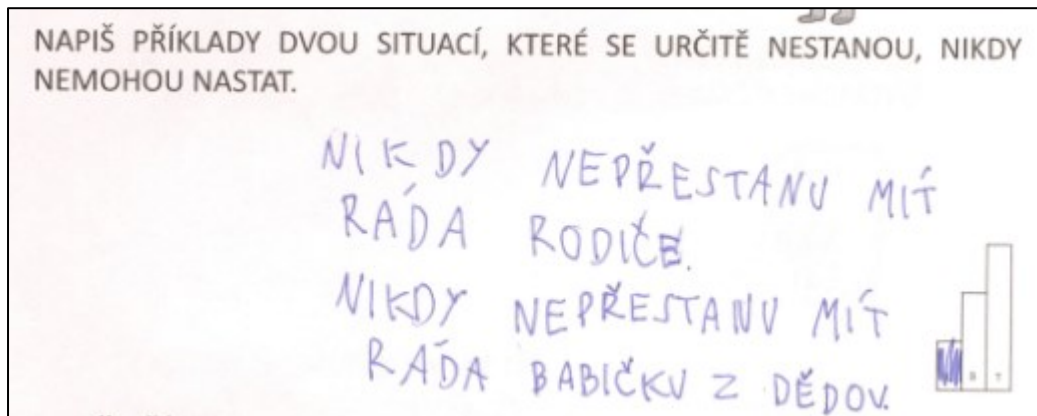 NAPIŠ PŘÍKLADY DVOU SITUACÍ, KTERÉ SE URČITĚ NESTANOU, NIKDY
NEMOHOU NASTAT.
NIKDY NEPŘESTANU MÍT
RÁDA RODIČE.
NIKDY NEPŘESTANU MÍT
RÁDA BABIČKU Z DĚDOV.